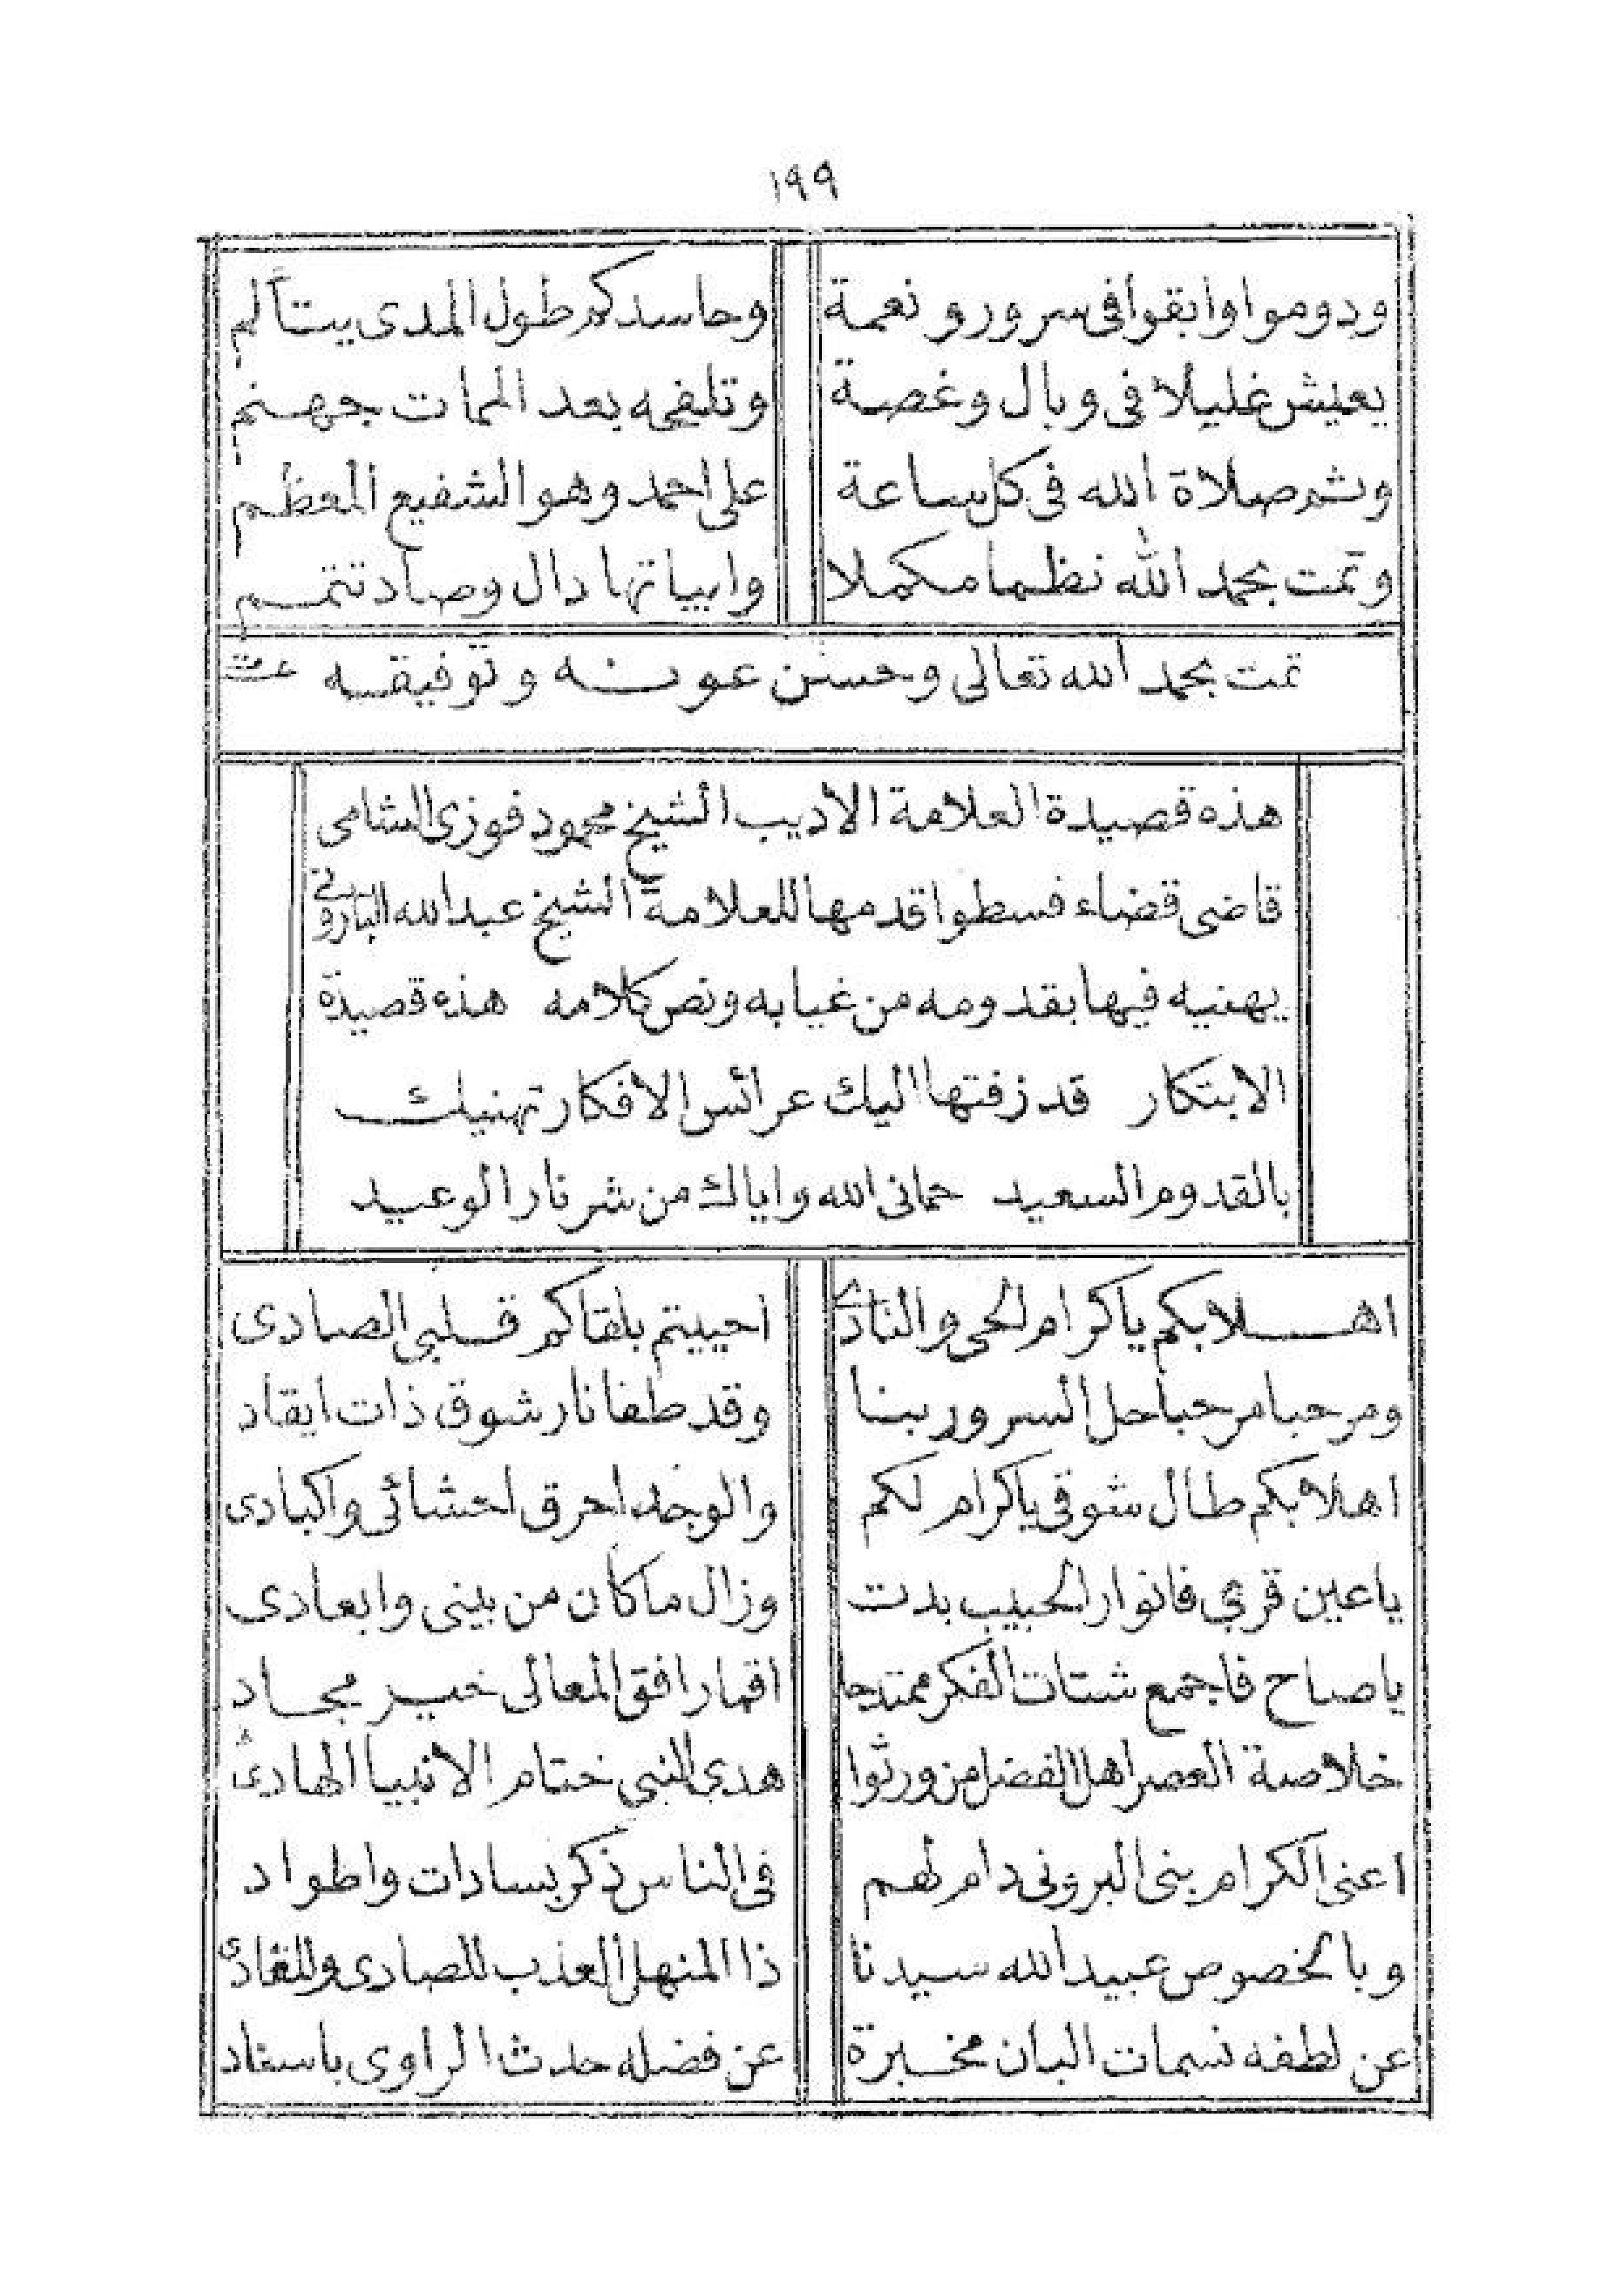 ١٩٩
ودوموا وابقوا فى سرور ونعمة وحاسدكم طول المدى يتألم
يعيش غليلا فى وبال وغصة وتلفحه بعد الممات جهنم
وثم صلاة الله فى كل ساعة على احمد وهو الشفيع المعظم
وتمت بحمد الله نظما مكملا وابياتها دال وصاد تتمم
تمت بحمد الله تعالى وحسن عونه وتوفيقه
هذه قصيدة العلامة الاديب الشيخ محمود فوزى الشامى
قاضى قضاء فسطوا قدمها للعلامة الشيخ عبدالله البارونى
يهنيه فيها بقدومه من غيابه ونص كلامه هذه قصيدة
الابتكار قد زفتها اليك عرائس الافكار تهنيك
بالقدوم السعيد حمانى الله واياك من شر نار الوعيد
اهلا بكم ياكرام الحى والنادى احييتم بلقاكم قلبى الصادى
ومرحبا مرحبا حل السرور بنا وقد طفا نار شوق ذات ايقاد
اهلا بكم طال شوقى ياكرام لكم والوجد احرق احشائى واكبادى
ياعين قرى فانوار الحبيب بدت وزال ماكان من بينى وابعادى
ياصاح فاجمع شتات الفكر ممتدحا اقمار افق المعالى خير مجاد
خلاصة العصر اهل الفضل من ورثوا هدى النبى ختام الانبيا الهادى
اعنى الكرام بنى البرونى دام لهم فى الناس ذكر بسادات واطواد
وبالخصوص عبيدالله سيدنا ذا المنهل العذب للصادى وللغادى
عن لطفه نسمات البان مخبرة عن فضله حدث الراوى باسناد